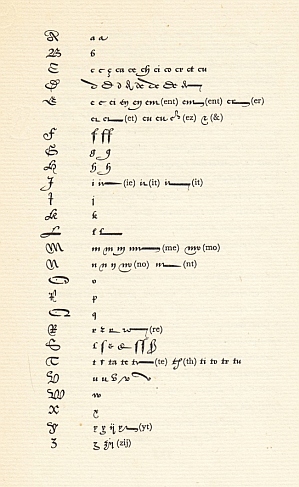 A a a
B b
C c c ç ca ce ch ci co cr ct cu
D d d d d de de de d
E e e ei en en em (ent) em (ent) er (er)
er er (et) eu eu ez (ez) & (&)
F f ff
G g g
H h h
I i i (ie) it (it) i (it)
J j
K k
L l l
M m m m m (me) mo (mo)
N n n n no (no) n (nt)
O o
P p
Q q
R r r r r (re)
S s s s s ss
T t t ta te t (te) th (th) ti to tr tu
U u u v v
W w
X x
Y y y ij y (yt)
Z z zij (zij)